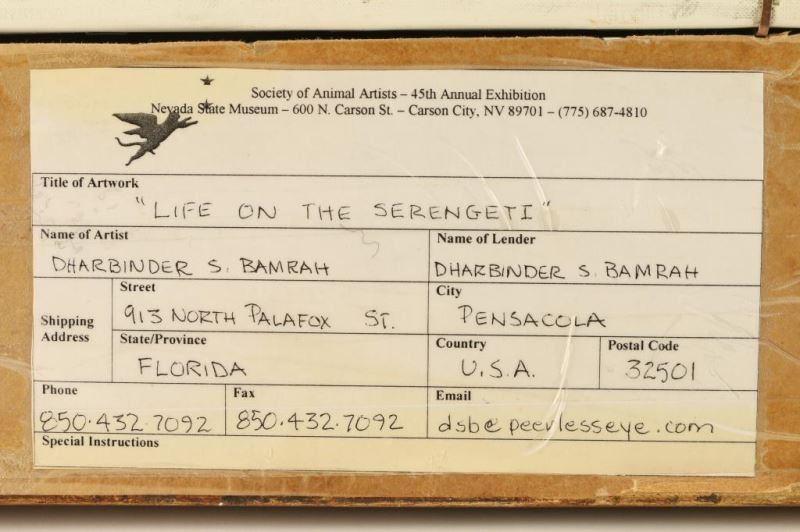 Society of Animal Artists – 45th Annual Exhibition
Nevada State Museum – 600 N. Carson St. – Carson City, NV 89701 – (775) 687-4810
Title of Artwork
"LIFE ON THE SERENGETI"
Name of Artist
Name of Lender
DHARBINDER S. BAMRAH
DHARBINDER S. BAMRAH
Shipping
Address
Street
City
913 NORTH PALAFOX ST.
PENSACOLA
State/Province
Country
Postal Code
FLORIDA
U.S.A.
32501
Phone
Fax
Email
850.432.7092
850.432.7092
dsb@peerlesseye.com
Special Instructions